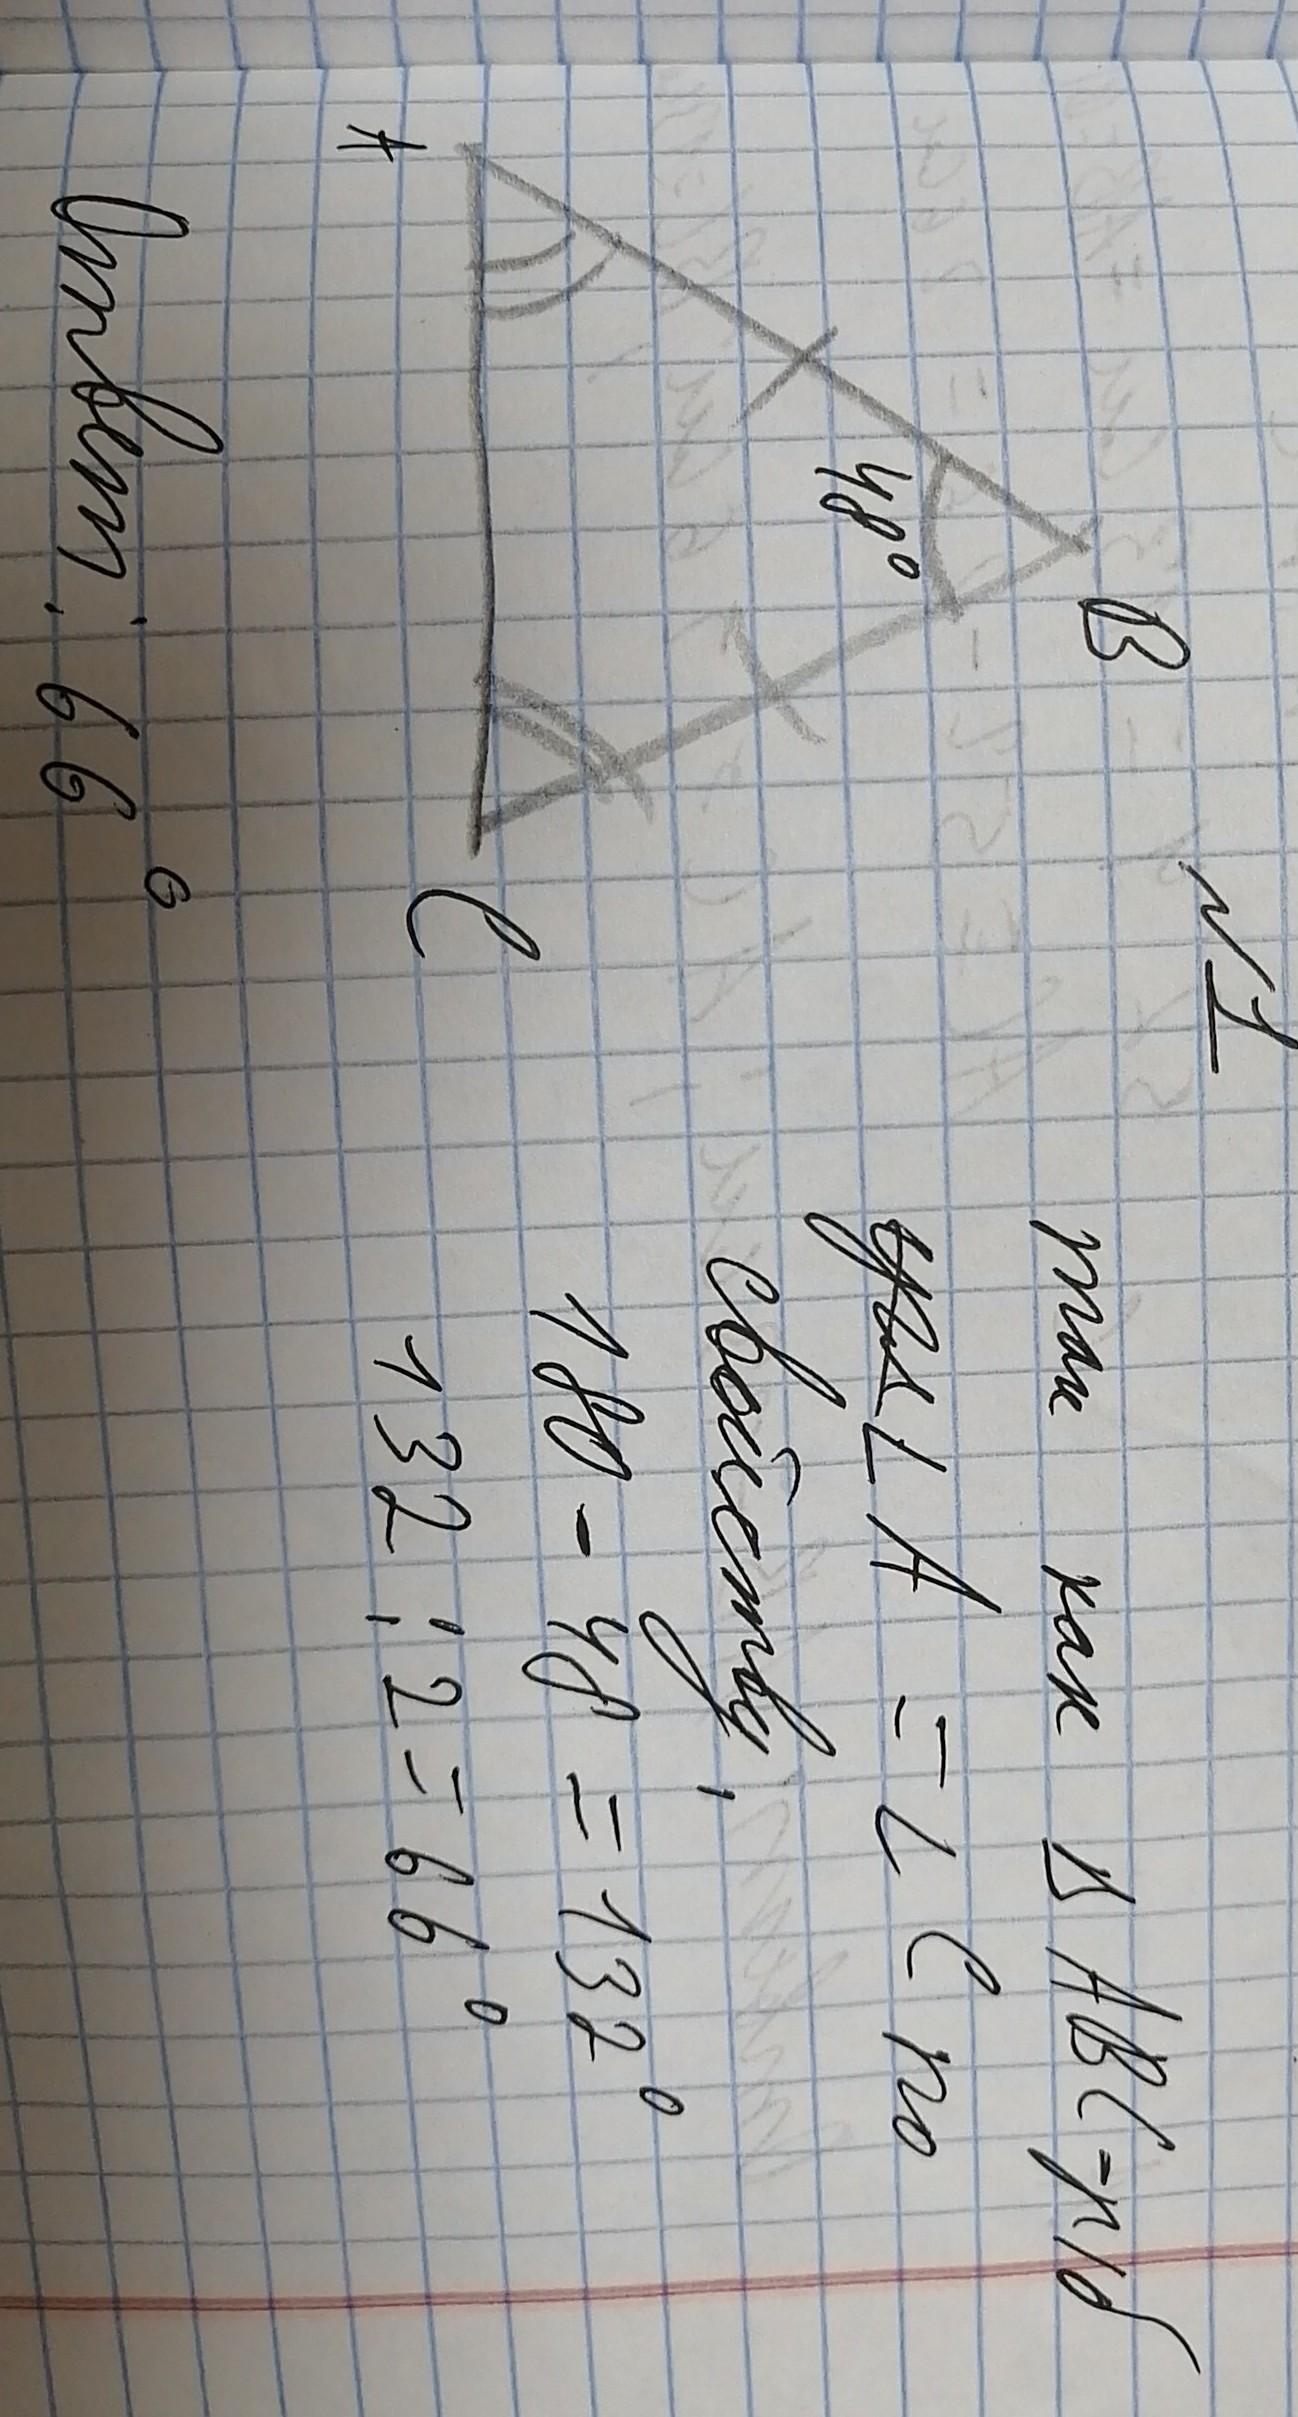 №1
B
48°
A
C
так как Δ ABC - р/б
угол ∟A = ∟C по
свойству,
180 - 48 = 132°
132 : 2 = 66°
Ответ: 66°